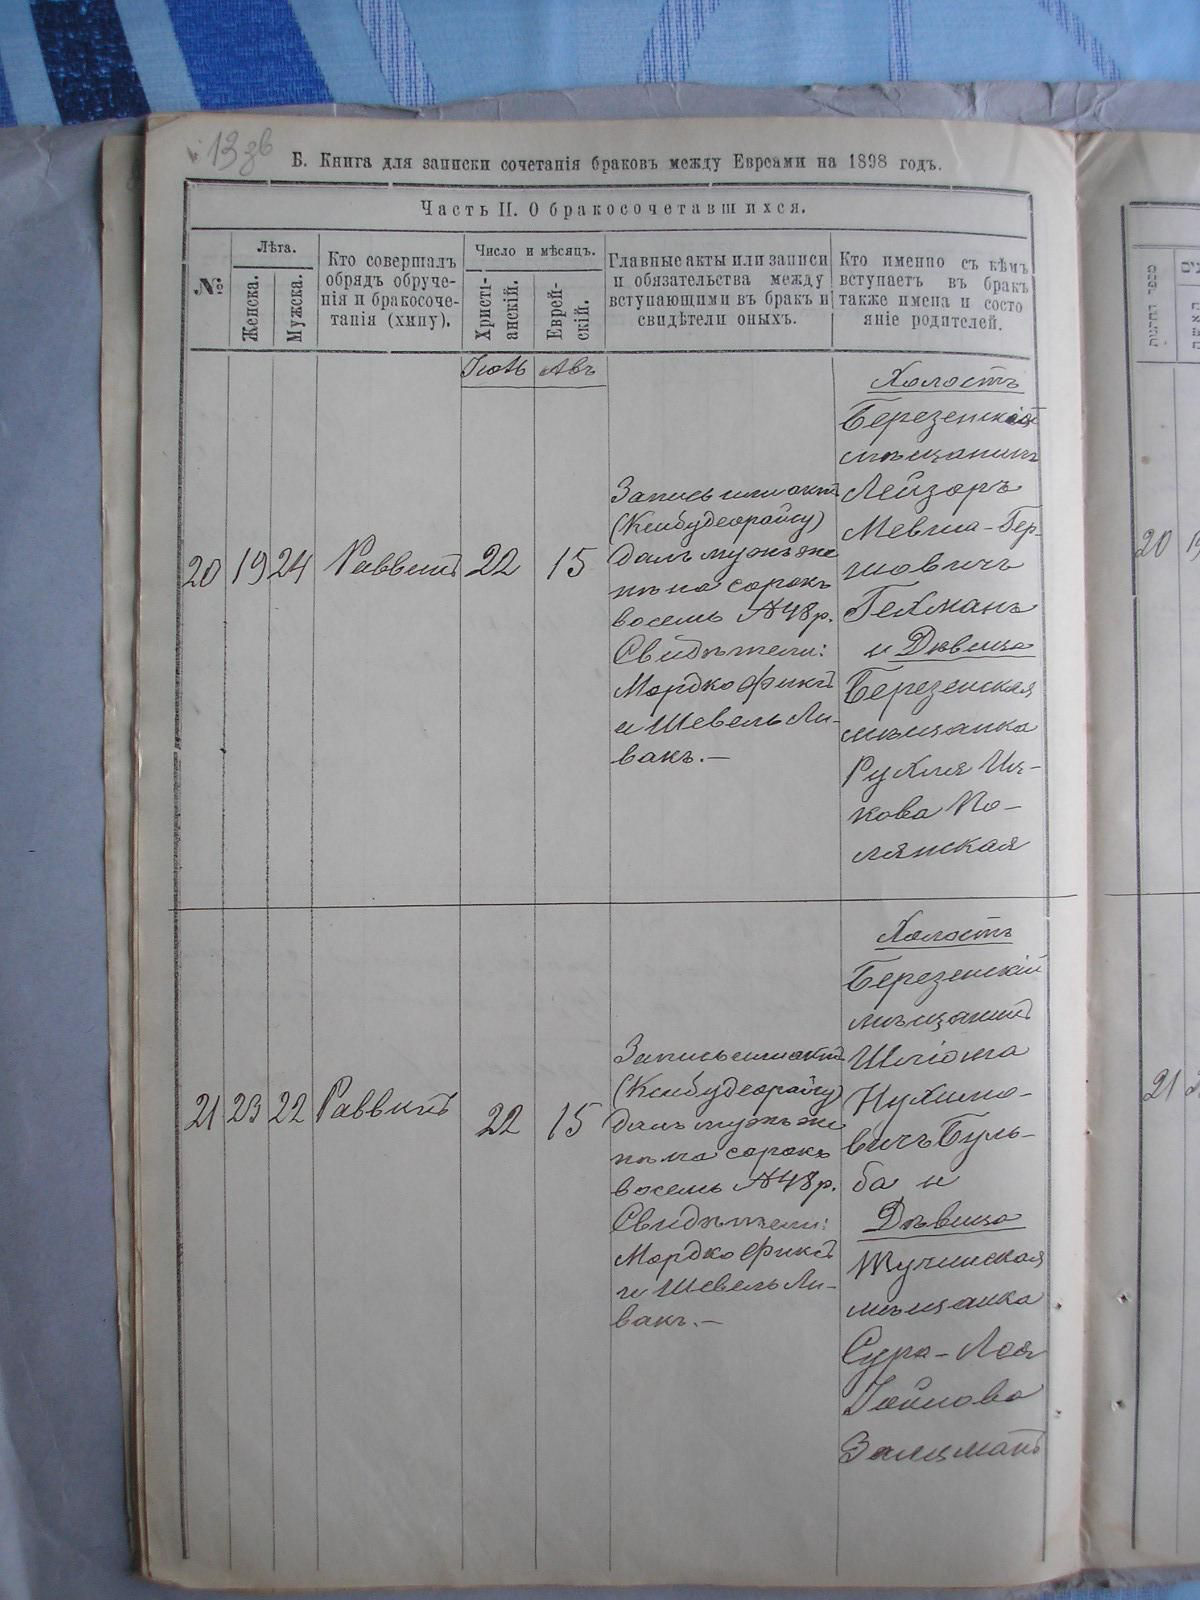 13 зв
Б. Книга для записки сочетанія браковъ между Евреами на 1898 годъ.
Часть II. О бракосочетавшихся.
№
Лѣта.
Женска.
Мужска.
Кто совершалъ
обрядъ обруче-
нія и бракосоче-
танія (хипу).
Число и мѣсяцъ.
Христі-
анскій.
Еврей-
скій.
Главные акты или записи
и обязательства между
вступающими въ бракъ и
свидѣтели оныхъ.
Кто именно съ кѣмъ
вступаетъ въ бракъ
также имена и состо
яніе родителей.
Іюль Авъ
20 19 24 Раввинъ 22 15
Запись или актъ
(Ксибудеорайсу)
далъ мужъ же
нѣ на сорокъ
восемь №48 р.
Свидѣтели:
Мордко Фиксъ
и Шевель Ли-
вакъ.—
Холостъ
Березенскій
мѣщанинъ
Лейзоръ
Мевша-Гер-
шовичъ
Гехманъ
и Дѣвица
Березенская
мѣщанка
Рухля Иц-
кова По-
лянская
21 23 22 Раввинъ 22 15
Запись или актъ
(Ксибудеорайсу)
далъ мужъ же
нѣ на сорокъ
восемь №48 р.
Свидѣтели:
Мордко Фиксъ
и Шевель Ли-
вакъ.—
Холостъ
Березенскій
мѣщанинъ
Шліома
Нухимо-
вичъ Буль-
ба и
Дѣвица
Тучинская
мѣщанка
Сура-Лея
Іойнова
Залцманъ
מספר החתנות
20
21